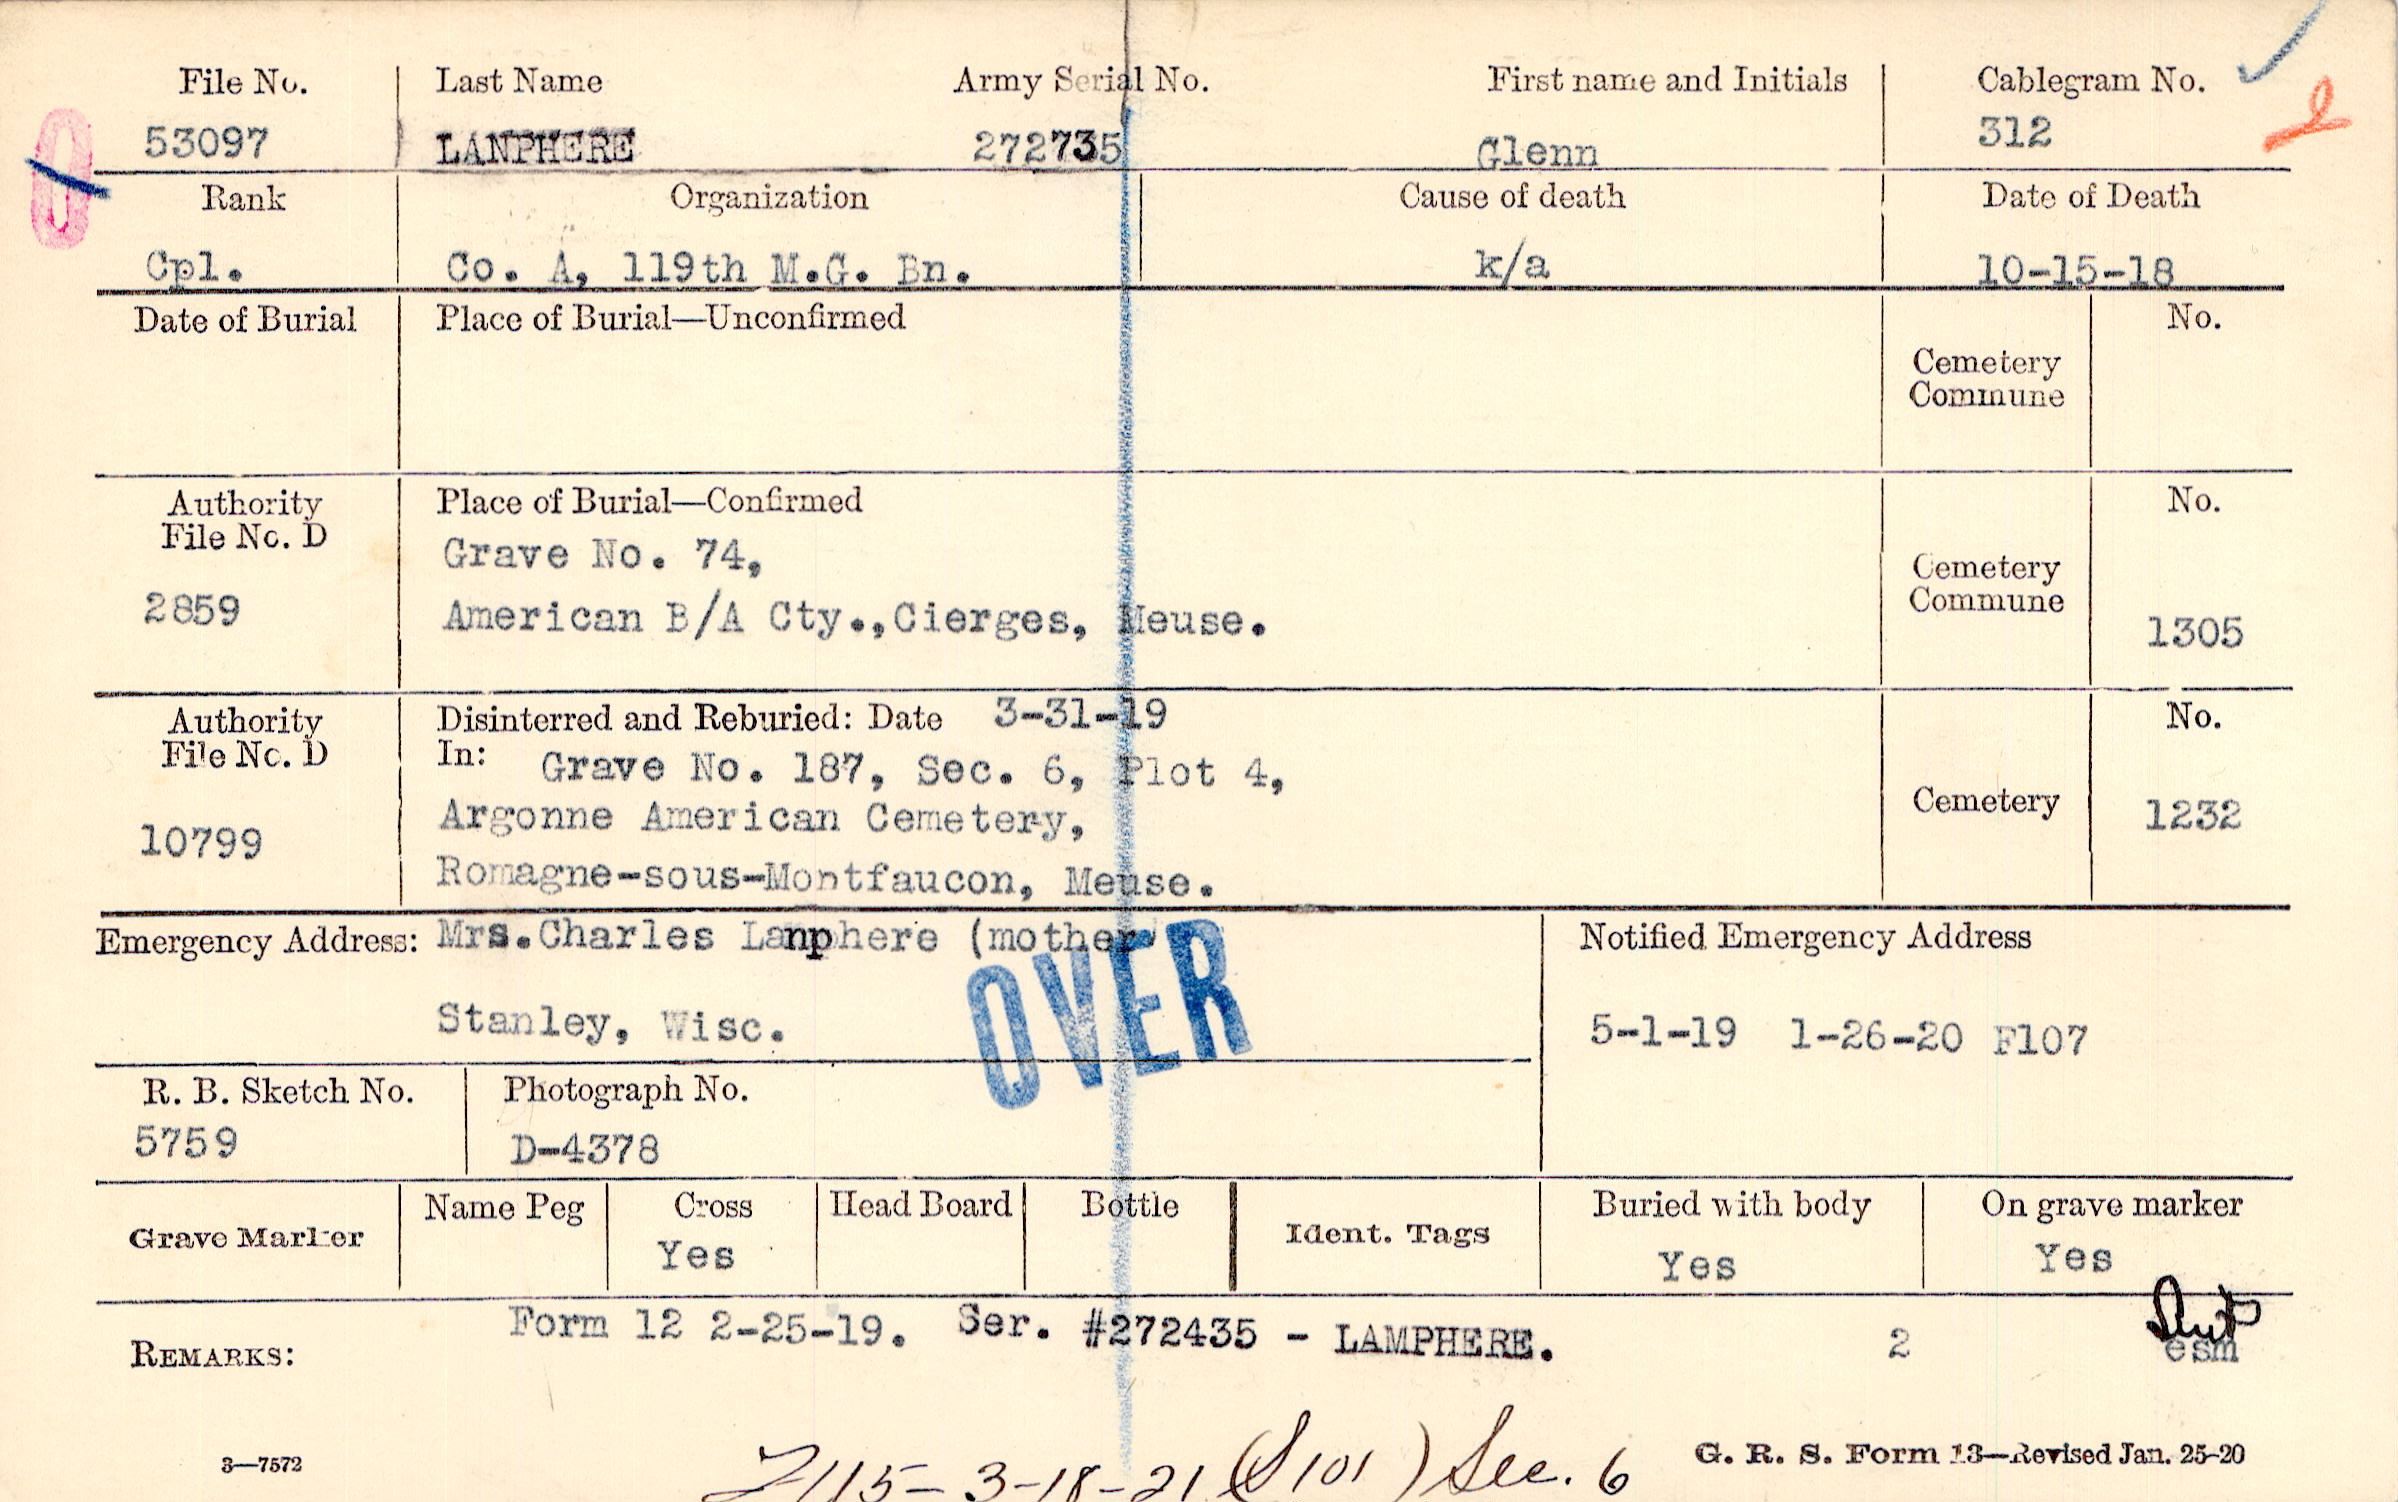 File No. Last Name Army Serial No. First name and Initials Cablegram No.
53097 LANPHERE 272735 Glenn 312
Rank Organization Cause of death Date of Death
Cpl. Co. A, 119th M.G. Bn. k/a 10-15-18
Date of Burial Place of Burial—Unconfirmed No.
Cemetery
Commune
Authority Place of Burial—Confirmed No.
File No. D
Grave No. 74,
Cemetery
Commune
2859 American B/A Cty.,Cierges, Meuse. 1305
Authority Disinterred and Reburied: Date 3-31-19 No.
File No. D In: Grave No. 187, Sec. 6, Plot 4,
Argonne American Cemetery, Cemetery 1232
10799
Romagne-sous-Montfaucon, Meuse.
Emergency Address: Mrs.Charles Lanphere (mother Notified Emergency Address
OVER
Stanley, Wisc. 5-1-19 1-26-20 F107
R. B. Sketch No. Photograph No.
5759 D-4378
Grave Marker Name Peg Cross Head Board Bottle Ident. Tags Buried with body On grave marker
Yes Yes Yes
REMARKS: Form 12 2-25-19. Ser. #272435 - LAMPHERE. 2 esm
3—7572 G. R. S. Form 13—Revised Jan. 25-20
3-18-21 (S101) Sec. 6